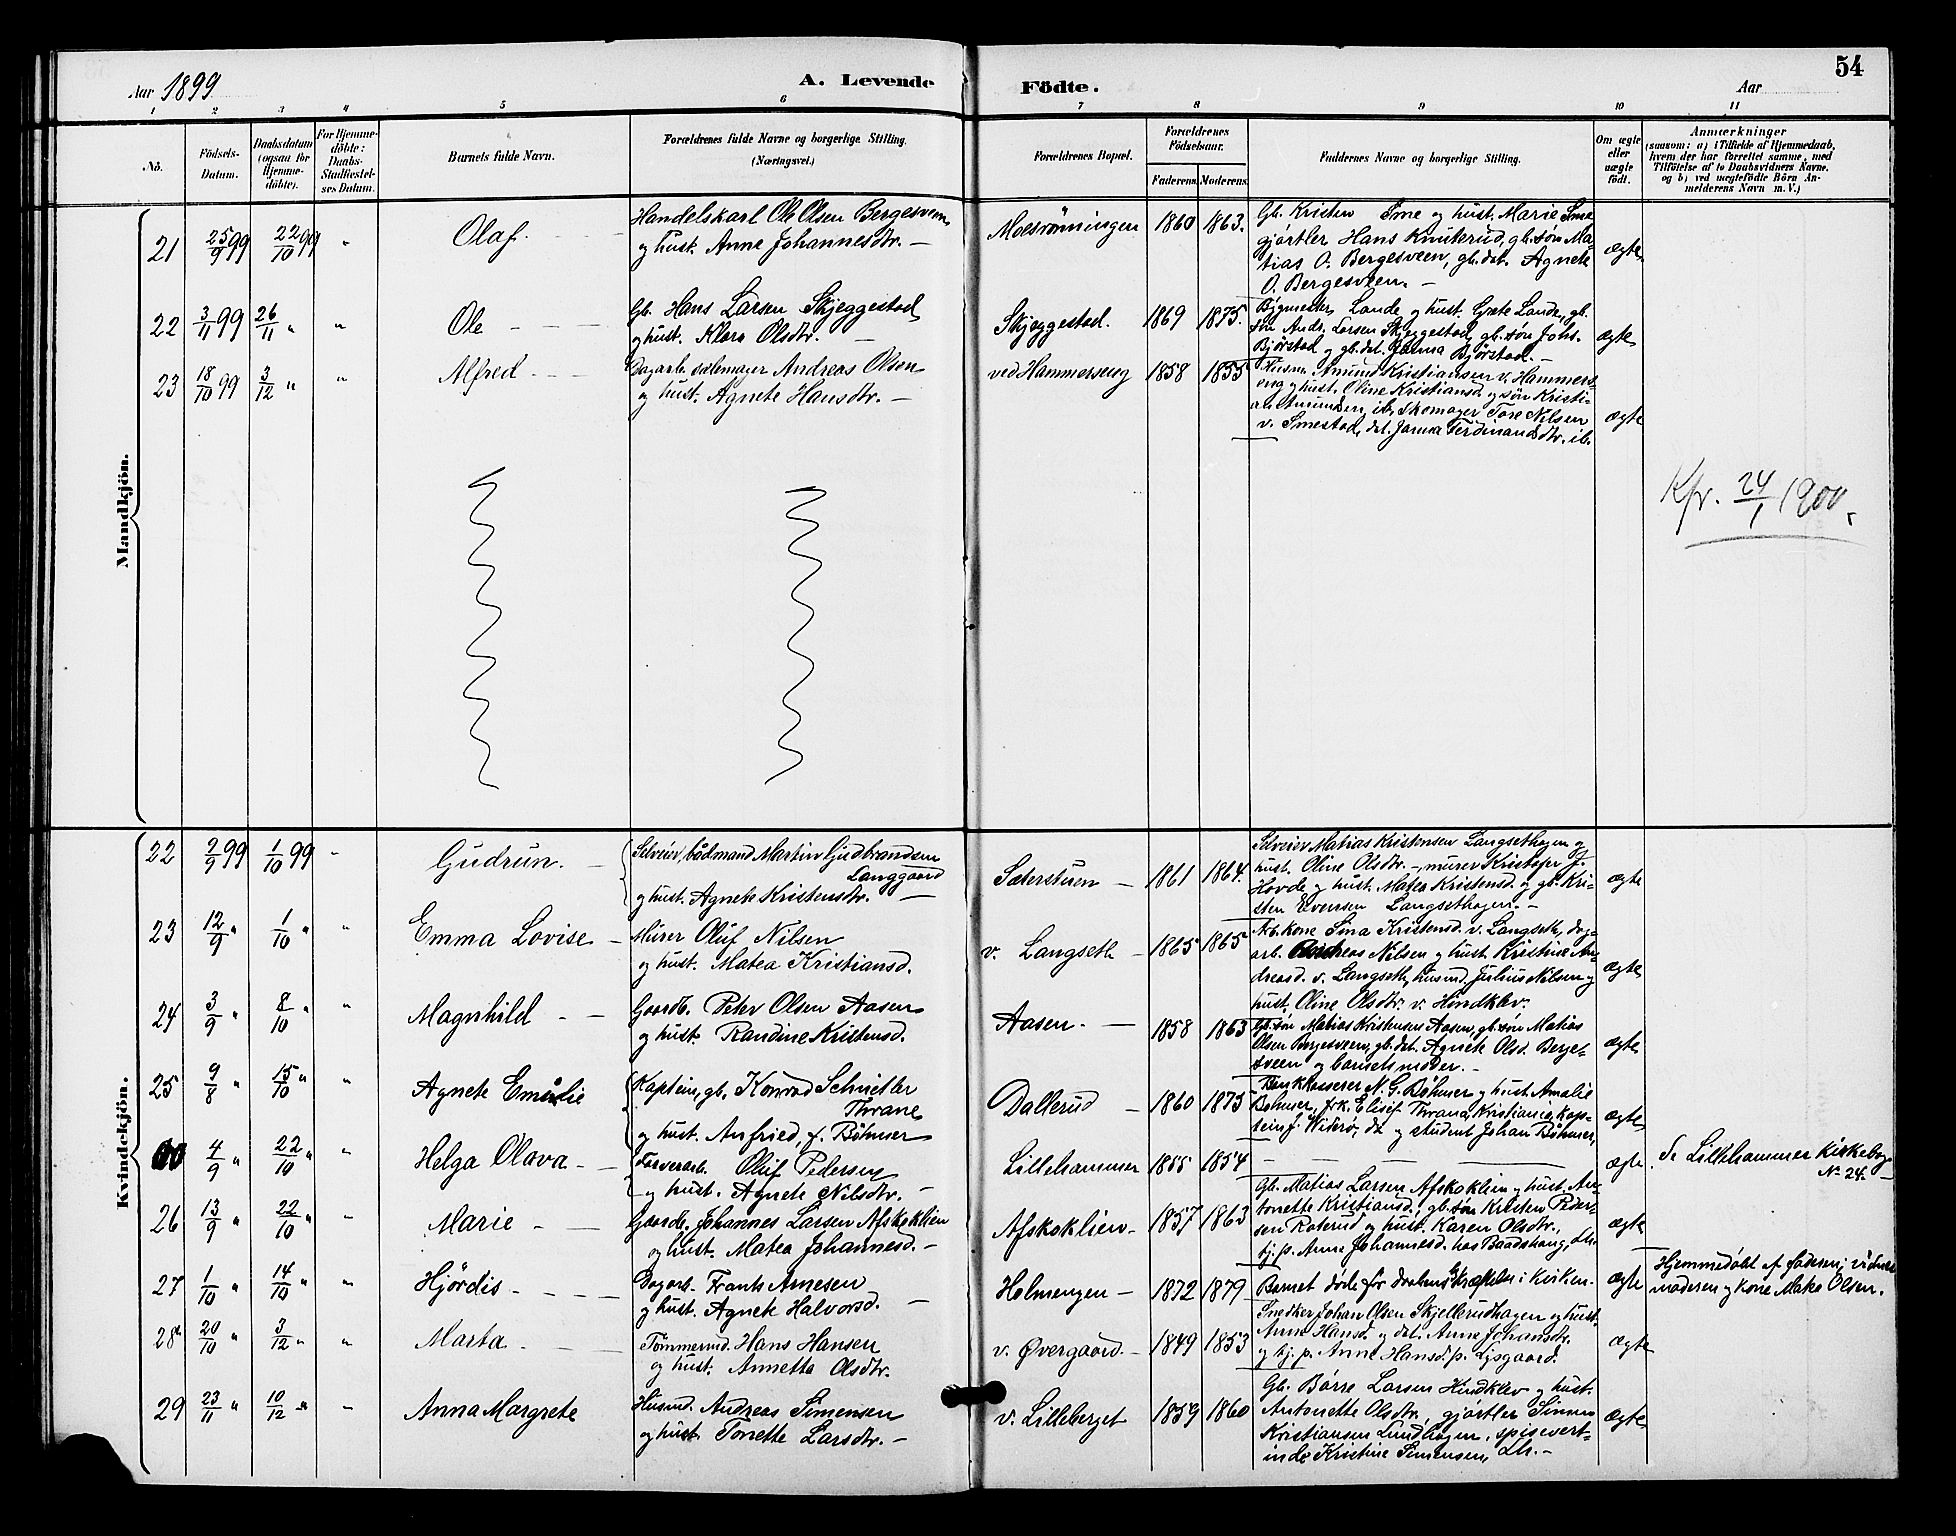 54
Aar 1899
A. Levende
Födte.
Aar
1 2 3 4 5 6 7 8 9 10 11
No.
Födsels-
Datum.
Daabsdatum
(ogsaa for
Hjemme-
döbte).
For Hjemme-
döbte:
Daabs-
Stadfæstel-
ses Datum.
Barnets fulde Navn.
Forældrenes fulde Navne og borgerlige Stilling.
(Næringsvei.)
Forældrenes Bopæl.
Forældrenes
Födselsaar.
Faderens. Moderens.
Faddernes Navne og borgerlige Stilling.
Om ægte
eller
uægte
födt.
Anmærkninger
(saasom: a) i Tilfælde af Hjemmedaab,
hvem der har forrettet samme, med
Tilföielse af to Daabsvidners Navne,
og b) ved uægtefödte Börn An-
melderens Navn m. V.)
Mandkjön.
21 25/9 99 22/10 99 " Olaf.
Handelskarl Ole Olsen Bergesveen
og hust. Anne Johannesdtr. —
Moesrønningen 1860 1863.
Gb. Kristen Sme og hust. Marie Sme
gjørtler Hans Knuterud, gb. søn Ma-
tias O. Bergesveen, gb. dat. Agnete
O. Bergesveen. —
ægte
22 3/11 99 26/11 " " Ole
Gb. Hans Larsen Skjeggestad
og hust. Klara Olsdtr. —
Skjeggestad. 1869 1875.
Bygmester Lande og hust. Grete Lande, gb.
søn Andr. Larsen Skjeggestad, gb. søn Johs.
Bjørstad og gb. dat. Janna Bjørstad. —
ægte
23 18/10 99 3/12 " " Alfred
Dagarb. salmager Andreas Olsen
og hust. Agnete Hansdtr. —
ved Hammerseng 1858 1855
Husm. Amund Kristiansen v. Hammers-
eng og hust. Oline Kristiansd. og søn Kristi-
an Amundsen, ib, skomager Tore Nilsen
v. Smestad, dat. Janna Ferdinandsdtr. ib.
ægte
Kfr. 24/1 1900.
Kvindekjön.
22 2/9 99 1/10 99 " Gudrun.
Selveier, bådmand Martin Gudbrandsen
Langgaard
og hust. Agnete Kristensdtr. —
Sæterstuen — 1861 1864.
Selveier Matias Kristensen Langsethagen og
hust. Oline Olsdtr. —, murer Kristofer J.
Hovde og hust. Matea Kristensd. og gb. Kri-
sten Evensen Langsethagen. —
ægte
23 12/9 " 1/10 " " Emma Lovise —
Murer Oluf Nilsen
og hust. Matea Kristiansd.
v. Langseth — 1865 1865
Arb. kone Sina Kristensd. v. Langseth, dag-
arb. Andreas Nilsen og hust. Kristine An-
dreasd. v. Langseth, husmd. Julius Nilsen og
hust. Oline Olsdtr. v. Hindklev.
ægte
24 3/9 " 8/10 " " Magnhild
Gaardb. Peter Olsen Aasen
og hust. Randine Kristensd.
Aasen. — 1858 1863
Gb. søn Matias Kristensen Aasen, gb. søn Matias
Olsen Bergesveen, gb. dat. Agnete Olsd. Berge-
sveen og barnets moder. —
ægte
25 9/8 " 15/10 " " Agnete Emilie
Kaptein, gb. Konrad Schnitler
Thrane
og hust. Anfried, f. Böhmer
Dallerud — 1860 1875
Bankkasserer N. G. Böhmer og hust. Amalie
Böhmer, frk. Elisef Thrana, Kristiania, kap-
tein J. Widerø, do og student Johan Böhmer.
ægte
4/9 " 22/10 " " Helga Olava —
Farverarb. Oluf Pedersen
og hust. Agnete Nilsdtr. —
Lillehammer 1855 1854 — — —
ægte
Se Lillehammer kirkebog
No 24. —
26 13/9 " 22/10 " " Marie
Gaardb. Johannes Larsen Afskoklien
og hust. Matea Johannesd. —
Afskoklien — 1857 1863
Gb. Matias Larsen Afskoklien og hust. An-
tonette Kristiansd., gb. søn Kristen Peder-
sen Roterud og hust. Karen Olsdtr.,
tj. p. Anne Johannesd. hos Baadshaug, Lh.
ægte
27 1/10 " 14/10 " " Hjördis
Dagarb. Frants Arnesen
og hust. Agnete Halvorsd. —
Holmengen — 1872 1879
Barnet døde før daabens bekræftelse i kirken.
ægte
Hjemmedøbt af faderen; vidner
moderen og kone Maka Olsen.
28 20/10 " 3/12 " " Marta
Tømmermd. Hans Hansen
og hust. Annette Olsdtr.
v. Øvergaard. — 1849 1853
Snedker Johan Olsen Skjellerudhagen og hust.
Anne Hansd. og dat. Anne Johansdtr.
og tj. p. Anne Hansd. p. Lysgaard.
ægte
29 23/11 " 10/12 " " Anna Margrete
Husmd. Andreas Simensen
og hust. Tonette Larsdtr. —
v. Lilleberget 1859 1860
Gb. Börre Larsen Hindklev og hust.
Antonette Olsdtr., gjørtler Simen
Kristiansen Lundhagen, spisevert-
inde Kristine Simensen, Lh. —
ægte